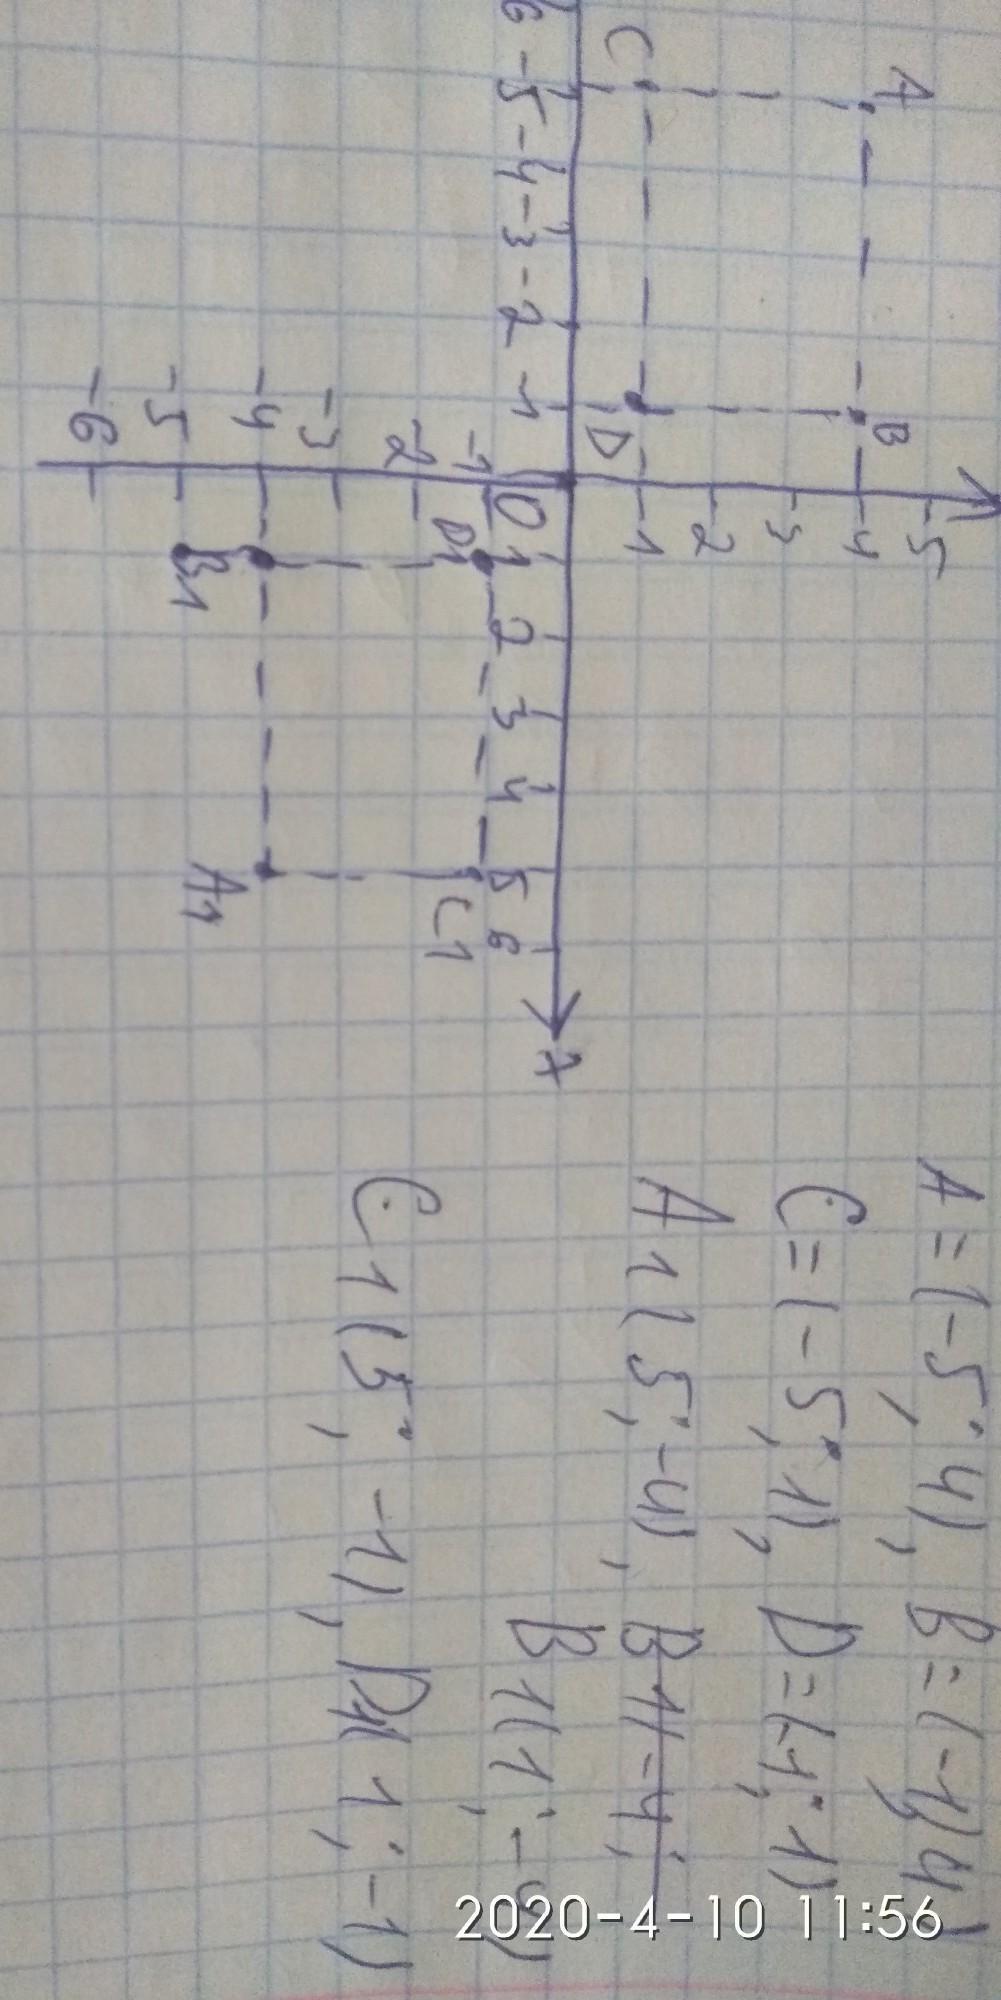 5
A
B
4
3
2
C
D
1
6 -5 -4 -3 -2 -1 0 1 2 3 4 5 6
x
-1
D1
C1
-2
-3
-4
B1
A1
-5
-6
A=(-5; 4), B=(-1; 4)
C=(-5; 1), D=(-1; 1)
A1(5; -4), B1(-4;
B1(1; -4)
C1(5; -1), D1(1; -1)
2020-4-10 11:56